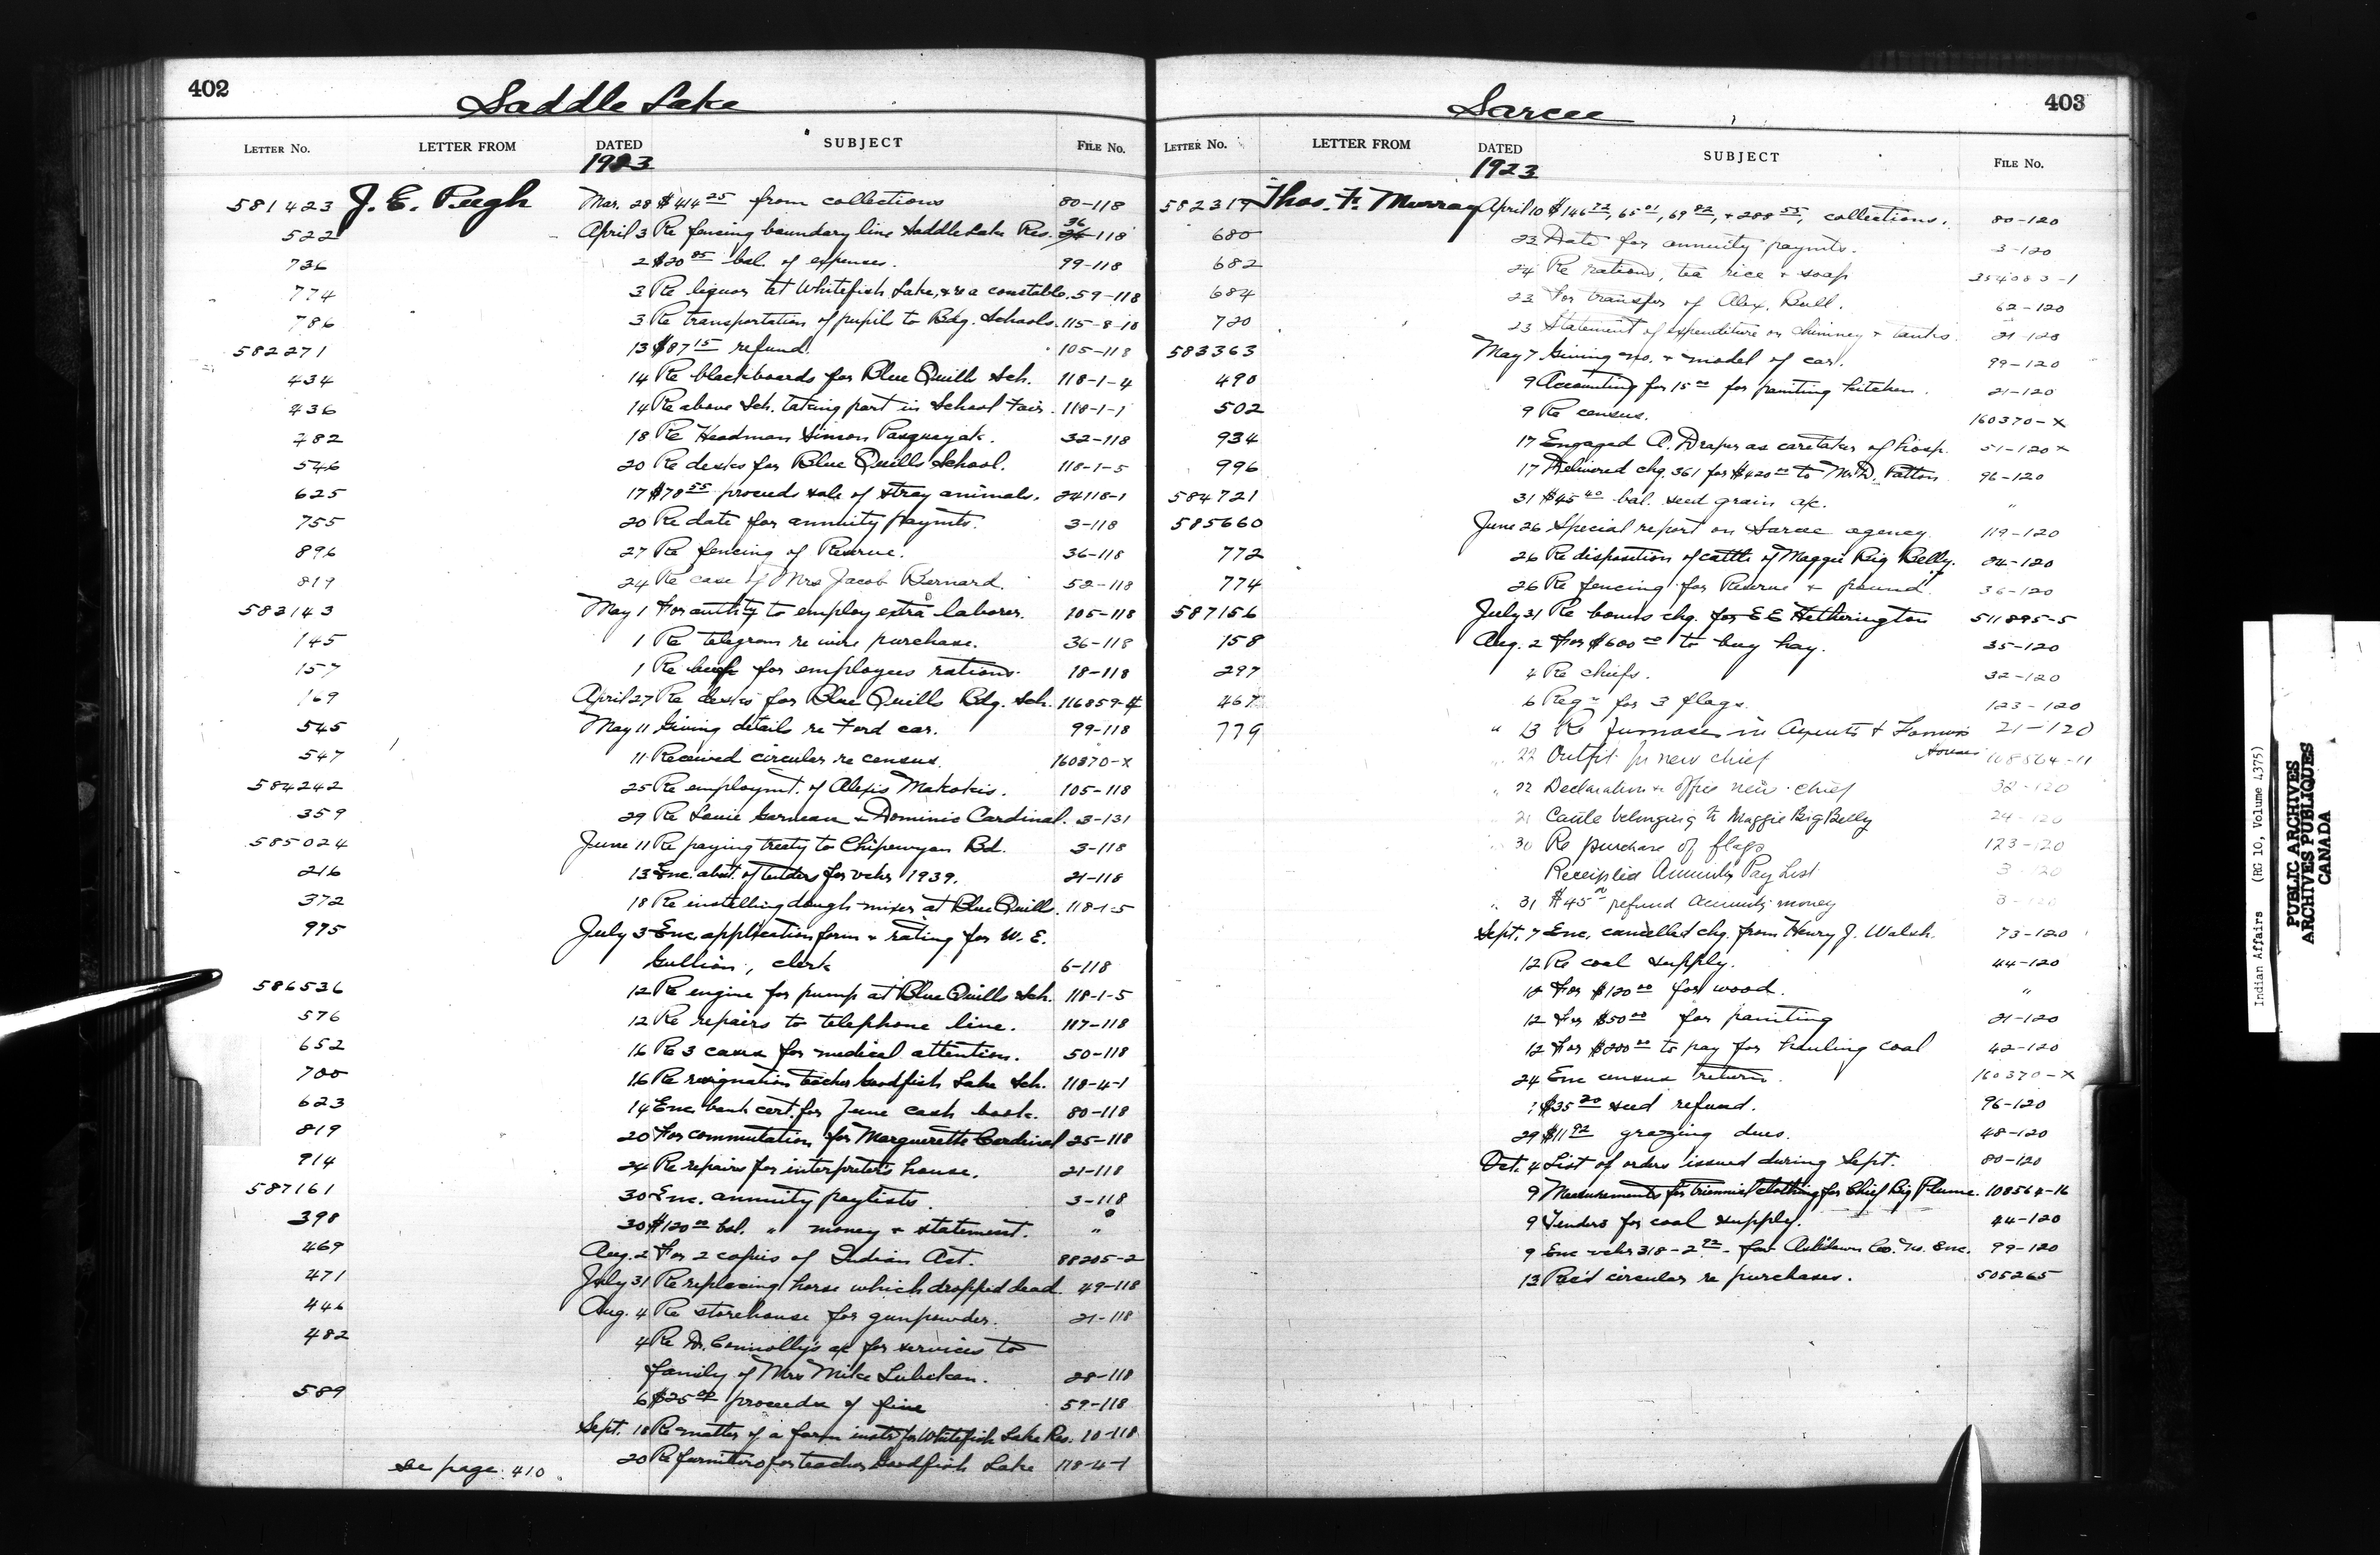 402
Saddle Lake
LETTER No. LETTER FROM DATED SUBJECT FILE No.
1923
581423 J. E. Pugh Mar. 28 $414 25 from collections 80-118
522 April 3 Re fencing boundary line Saddle Lake Res. 36-118
736 2 $20 85 bal. of expenses. 99-118
774 3 Re liquor at Whitefish Lake, & re a constable. 59-118
786 3 Re transportation of pupils to Bdg. Schools. 115-8-10
582271 13 $87 15 refund. 105-118
434 14 Re blackboards for Blue Quills Sch. 118-1-4
436 14 Re above Sch. taking part in School Fair. 118-1-1
482 18 Re Headman Simon 32-118
546 20 Re desks for Blue Quills School. 118-1-5
625 17 $78 55 proceeds sale of stray animals. 24118-1
755 20 Re date for annuity paymts. 3-118
896 27 Re fencing of Reserve. 36-118
819 24 Re case of Mrs Jacob Bernard. 52-118
583143 May 1 For authity to employ extra laborer. 105-118
145 1 Re telegram re wire purchase. 36-118
157 1 Re beef for employees rations. 18-118
169 April 27 Re desks for Blue Quills Bdg. Sch. 116859-4
545 May 11 Giving details re Ford car. 99-118
547 11 Received circular re census. 160370-x
584242 25 Re employmt. of Alexis Makokis. 105-118
359 29 Re Louie Garneau & Dominic Cardinal. 3-131
585024 June 11 Re paying treaty to Chipewyan Bd. 3-118
216 13 Enc. abst. of tenders for vchr 1939. 21-118
372 18 Re installing dough mixer at Blue Quills. 118-1-5
975 July 3 Enc. application form & rating for W. E.
Gullion, clerk 6-118
586536 12 Re engine for pump at Blue Quills Sch. 118-1-5
576 12 Re repairs to telephone line. 117-118
652 16 Re 3 cases for medical attention. 50-118
700 16 Re resignation teacher Goodfish Lake Sch. 118-4-1
623 14 Enc. bank cert. for June cash book. 80-118
819 20 For commutation for Marguerette Cardinal 25-118
914 24 Re repairs for interpreter's house. 21-118
587161 30 Enc. annuity paylists. 3-118
398 30 $120 00 bal. " money & statement. "
469 Aug. 2 For 2 copies of Indian Act. 88205-2
471 July 31 Re replacing horse which dropped dead. 49-118
446 Aug. 4 Re storehouse for gunpowder. 21-118
482 4 Re Dr. Connolly's a/c for services to
family of Mrs Mike 28-118
589 6 $25 00 proceeds of fine 59-118
Sept. 18 Re matter of a farm instr. for Whitefish Lake Res. 10-118
see page 410. 20 Re furniture for teacher Goodfish Lake 118-4-1
403
Sarcee
LETTER No. LETTER FROM DATED SUBJECT FILE No.
1923
582317 Thos. F. Murray April 10 $146 72, 65 01, 69 82, & 288 55, collections. 80-120
680 23 Date for annuity paymts. 3-120
682 24 Re rations, tea rice & soap 254083-1
684 23 For transfer of Alex. Bull. 62-120
720 23 Statement of expenditure on chimney & tanks. 21-120
583363 May 7 Giving no. & model of car. 99-120
490 9 Accounting for 15 00 for painting kitchen. 21-120
502 9 Re census. 160370-x
934 17 Engaged A. Draper as caretaker of hosp. 51-120 x
996 17 Delivered chq. 361 for $420 00 to Mr D. Patton 96-120
584721 31 $45 40 bal. seed grain a/c. "
585660 June 26 Special report on Sarcee agency. 119-120
772 26 Re disposition of cattle of Maggie Big Belly. 24-120
774 26 Re fencing for Reserve & pound. 36-120
587156 July 31 Re bonus chq. for E E Hetherington 511895-5
158 Aug. 2 For $600 00 to buy hay. 35-120
297 4 Re chiefs. 32-120
467 6 Reqn for 3 flags. 123-120
779 " 13 Re furnaces in Agents & Farmers houses 21-120
" 22 Outfit for new chief 108564-11
" 22 Declaration & office new chief 32-120
21 Cattle belonging to Maggie Big Belly 24-120
30 Re purchase of flags 123-120
Receipted Annuity Pay List 3-120
" 31 $45 00 refund annuity money 3-120
Sept. 7 Enc. cancelled chq. from Henry J. Walsh. 73-120
12 Re coal supply. 44-120
12 For $120 00 for wood. "
12 For $50 00 for painting 21-120
12 For $200 00 to pay for hauling coal 42-120
24 Enc census return. 160370-x
$35 20 seed refund. 96-120
29 $11 92 grazing dues. 48-120
Oct. 4 List of orders issued during Sept. 80-120
9 Measurements for triennial clothing for Chief Big Plume. 108564-16
9 Tenders for coal supply. 44-120
9 Enc vchr 318-2 92 - for Ashdown Co. 99-120
13 Rec'd circular re purchases. 505265
Indian Affairs (RG 10, Volume 4375)
PUBLIC ARCHIVES
ARCHIVES PUBLIQUES
CANADA